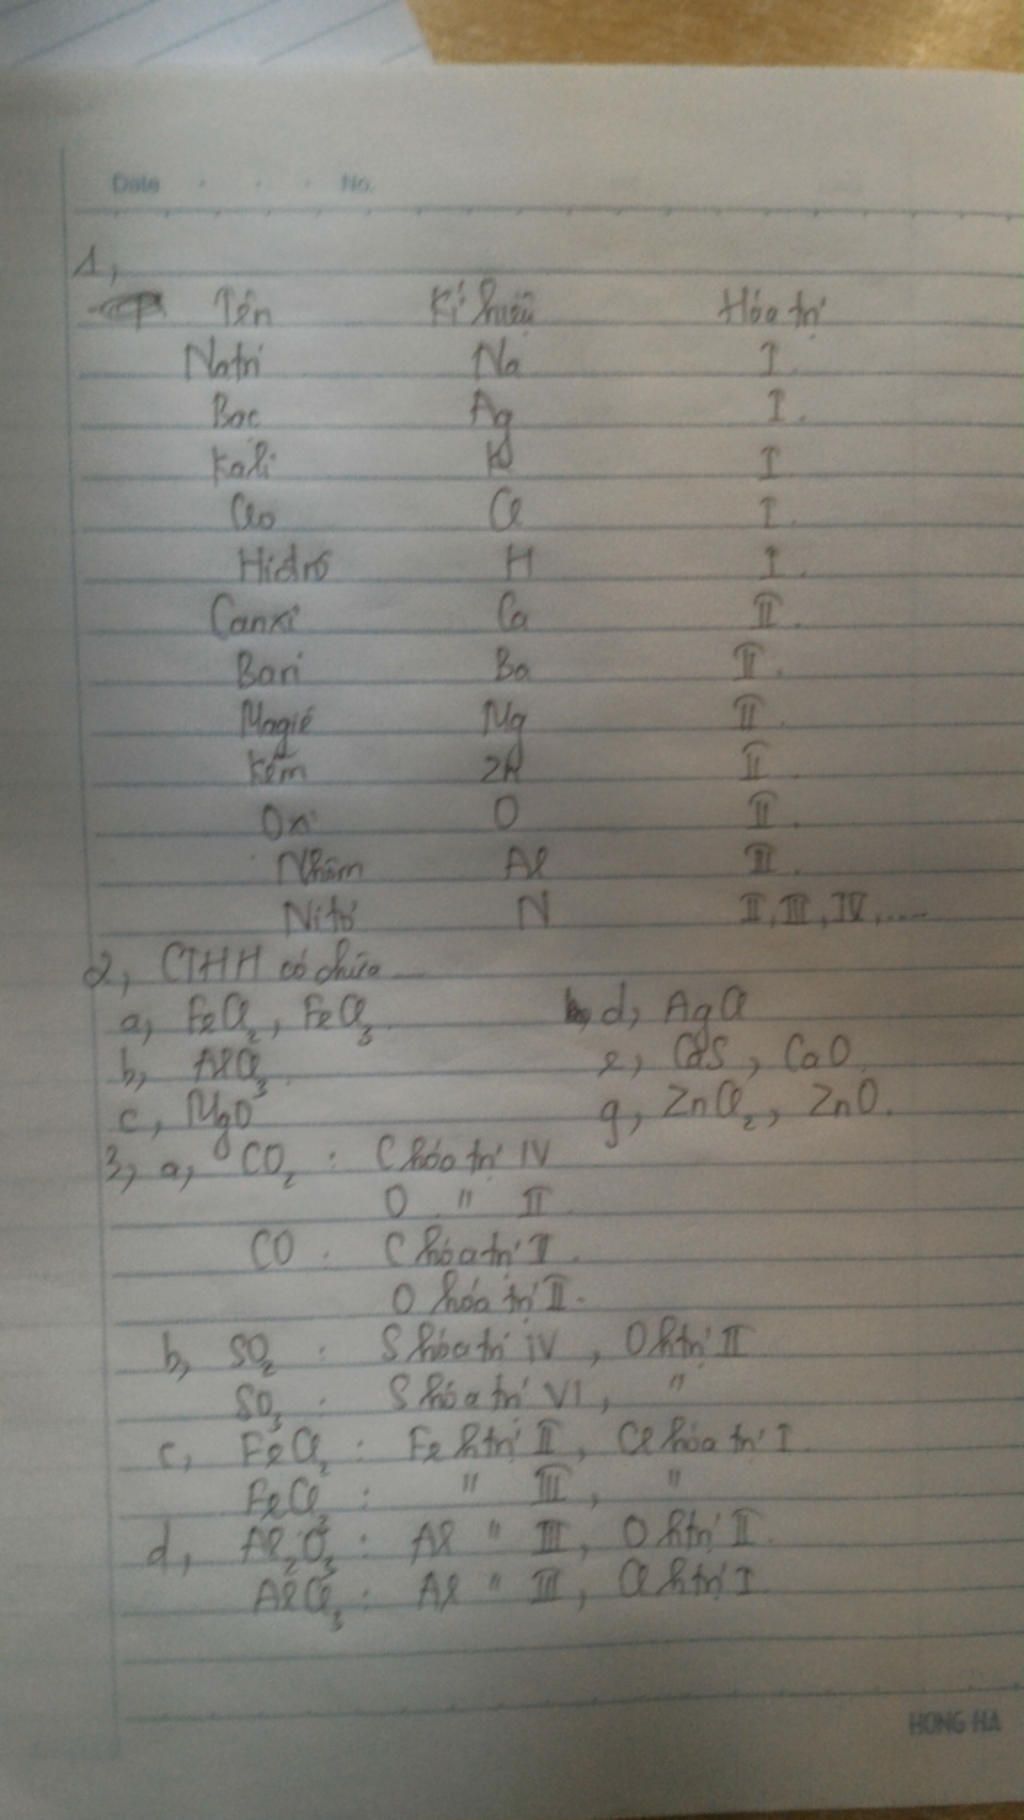 Date . . . No.
1,
Tên Kí hiệu Hóa trị
Natri Na I
Bạc Ag I.
Kali K I
Clo Cl I.
Hiđrô H I.
Canxi Ca II.
Bari Ba II.
Magiê Mg II
Kẽm Zn II.
Oxi O II.
Nhôm Al II.
Nitơ N II, III, IV, ....
2, CTHH có chứa
a, FeCl2, FeCl3 d, AgCl
b, AlCl3. e, CaS, CaO.
c, MgO g, ZnCl2, ZnO.
3, a, CO2 : C hóa trị IV
O " II
CO : C hóa trị II.
O hóa trị II.
b, SO2 : S hóa trị IV, O htrị II
SO3 : S hóa trị VI, "
c, FeCl2 : Fe htrị II, Cl hóa trị I.
FeCl3 : " III, "
d, Al2O3 : Al " III, O htrị II.
AlCl3 : Al " III, Cl htrị I
HONG HA